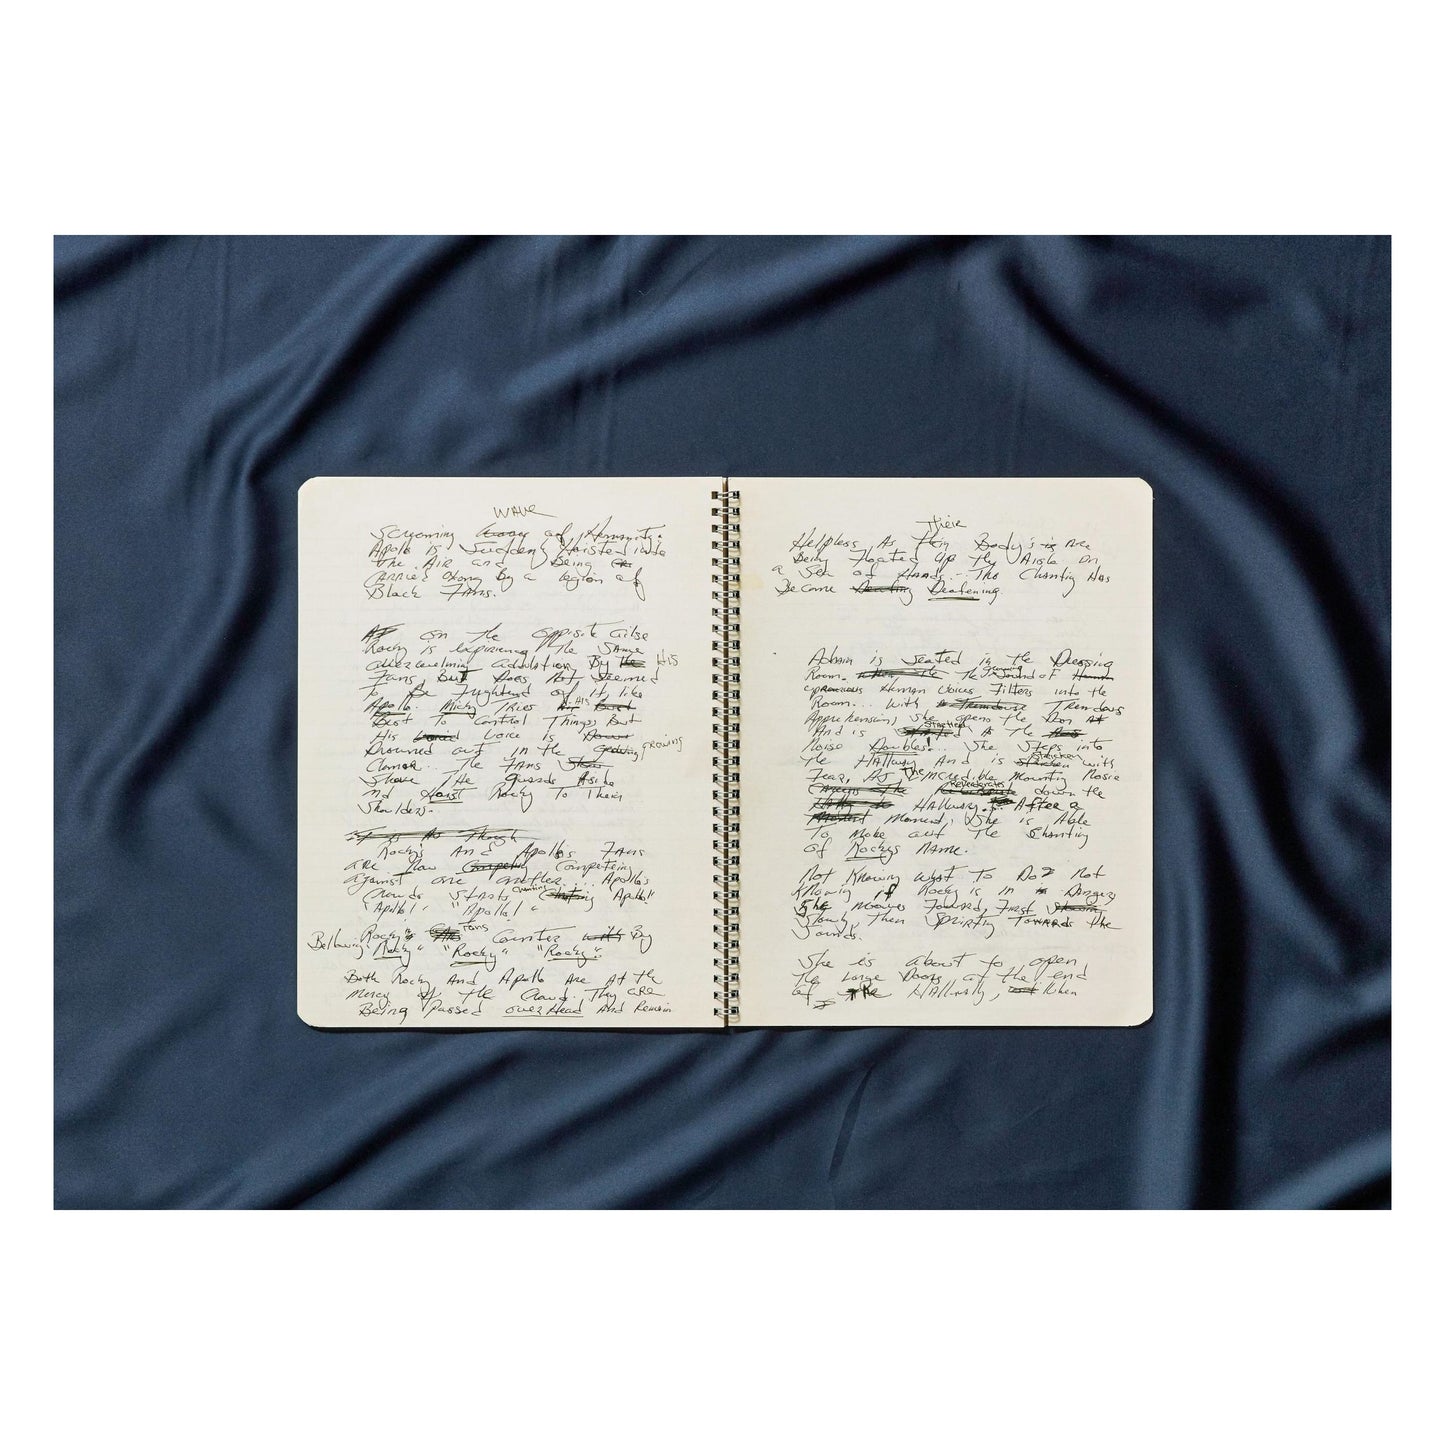 wave
Screaming of Humanity.
Apollo is Suddenly Hoisted into
the Air and Being
Carried along By a legion of
Black Fans.
on the opposite aisle
Rocky is expiriencing the Same
overwhelmin adulation By the His
Fans, But Does Not Seemed
To Be Frightend of it like
Apollo. Micky Tries His
Best To Control Things, But
His voice is
Drowned out in the growing
Clamor.. The Fans
Shove The guards Aside
nd Hoist Rocky To Their
Shoulders.
It is As Though
Rocky's And Apollo's Fans
are Now Competin Competein
against one another... Apollo's
Crowds Starts chanting Apollo"
"Apollo!" "Apollo!"
Rocky's Fans Counter with By
Bellowing "Rocky" "Rocky" "Rocky"
Both Rocky And Apollo Are At the
mercy of the Crowd. They are
Being passed overHead And Remain
Their
Helpless As Their Body's is are
Being Floated up the Aisle on
a Sea of Hands... The Chanting Has
Become Deafening
Adrain is Seated in the Dressing
Room. when the The growing Sound of Human
Human Voices Filters into the
Room... With Tremdous
Apprehension, she opens the Door
And is As the
Noise Doubles... She Steps into
the Hallway And is Stricken with
Fear, As The incredible mounting Noise
down the
Hallway... After a
Moment Moment, She is Able
To make out The Chanting
of Rockys Name.
Not Knowing what To Do? Not
Knowing if Rocky is in Danger
She moves Foward, First
Slowly, Then Sprintin Towards the
Sounds.
She is about to open
the large Doors at the end
of the Hallway, when